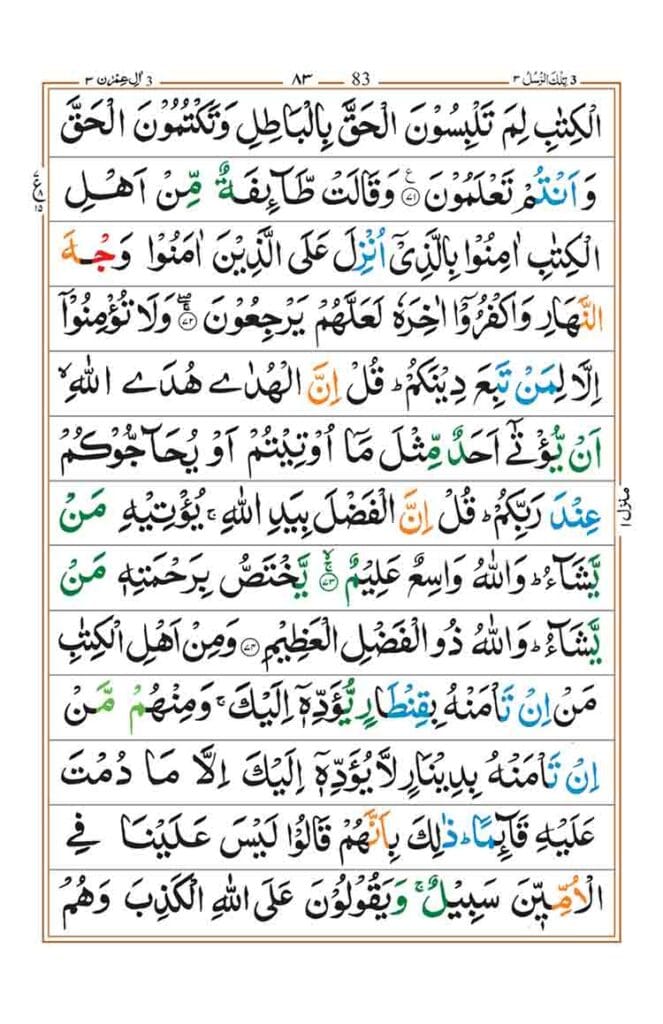 تِلْكَ الرُّسُلُ ٣ 3 83 ٨٣ اٰلِ عِمْرٰن ٣ 3
الْكِتٰبِ لِمَ تَلْبِسُوْنَ الْحَقَّ بِالْبَاطِلِ وَتَكْتُمُوْنَ الْحَقَّ
وَاَنْتُمْ تَعْلَمُوْنَ ﴿۷۱﴾ وَقَالَتْ طَّآئِفَةٌ مِّنْ اَهْلِ
الْكِتٰبِ اٰمِنُوْا بِالَّذِيْۤ اُنْزِلَ عَلَى الَّذِيْنَ اٰمَنُوْا وَجْهَ
النَّهَارِ وَاكْفُرُوْۤا اٰخِرَهٗ لَعَلَّهُمْ يَرْجِعُوْنَ ﴿۷۲﴾ وَلَا تُؤْمِنُوْۤا
اِلَّا لِمَنْ تَبِعَ دِيْنَكُمْ ؕ قُلْ اِنَّ الْهُدٰى هُدَى اللّٰهِ ۙ
اَنْ يُّؤْتٰۤى اَحَدٌ مِّثْلَ مَاۤ اُوْتِيْتُمْ اَوْ يُحَآجُّوْكُمْ
عِنْدَ رَبِّكُمْ ؕ قُلْ اِنَّ الْفَضْلَ بِيَدِ اللّٰهِ ۚ يُؤْتِيْهِ مَنْ
يَّشَآءُ ؕ وَاللّٰهُ وَاسِعٌ عَلِيْمٌ ﴿۷۳﴾ يَّخْتَصُّ بِرَحْمَتِهٖ مَنْ
يَّشَآءُ ؕ وَاللّٰهُ ذُو الْفَضْلِ الْعَظِيْمِ ﴿۷۴﴾ وَمِنْ اَهْلِ الْكِتٰبِ
مَنْ اِنْ تَاْمَنْهُ بِقِنْطَارٍ يُّؤَدِّهٖۤ اِلَيْكَ ۚ وَمِنْهُمْ مَّنْ
اِنْ تَاْمَنْهُ بِدِيْنَارٍ لَّا يُؤَدِّهٖۤ اِلَيْكَ اِلَّا مَا دُمْتَ
عَلَيْهِ قَآئِمًا ؕ ذٰلِكَ بِاَنَّهُمْ قَالُوْا لَيْسَ عَلَيْنَا فِي
الْاُمِّيّٖنَ سَبِيْلٌ ۚ وَيَقُوْلُوْنَ عَلَى اللّٰهِ الْكَذِبَ وَهُمْ
منزل ١